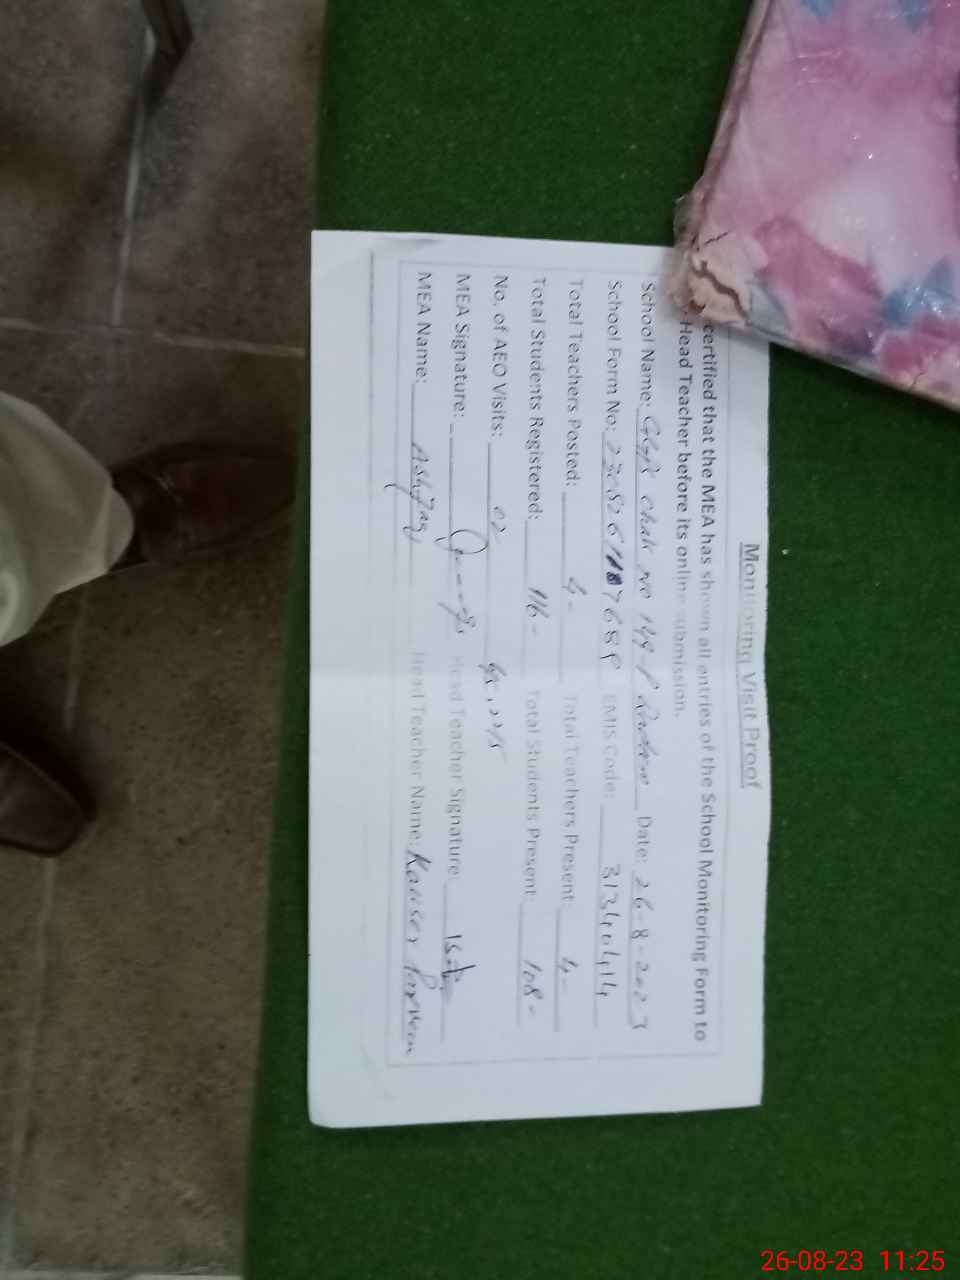 Monitoring Visit Proof
certified that the MEA has shown all entries of the School Monitoring Form to
Head Teacher before its online submission.
School Name: Chak No Date: 26-8-2023
School Form No: EMIS Code: 31340414
Total Teachers Posted: 4- Total Teachers Present: 4-
Total Students Registered: 116- Total Students Present: 108-
No. of AEO Visits: 02
MEA Signature: Head Teacher Signature:
MEA Name: Ashfaq Head Teacher Name: Kauser Parveen
26-08-23 11:25